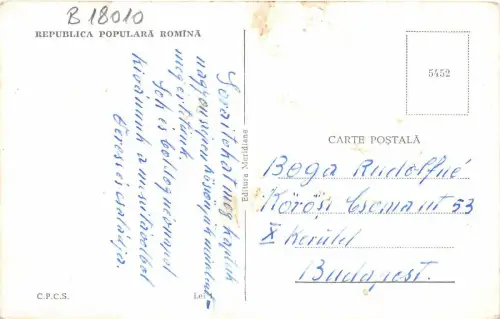 B 18010
REPUBLICA POPULARĂ ROMÎNĂ
Soraitokat meg kaptuk
nagyon szépen köszönjük mindent
megértettünk.
Sok és boldog névnapot
kívánunk a
Veress és családja.
Editura Meridiane
5452
CARTE POȘTALĂ
Boga Rudolfné
Kőrösi Csoma út 53
X Kerület
Budapest.
C.P.C.S.
Lei